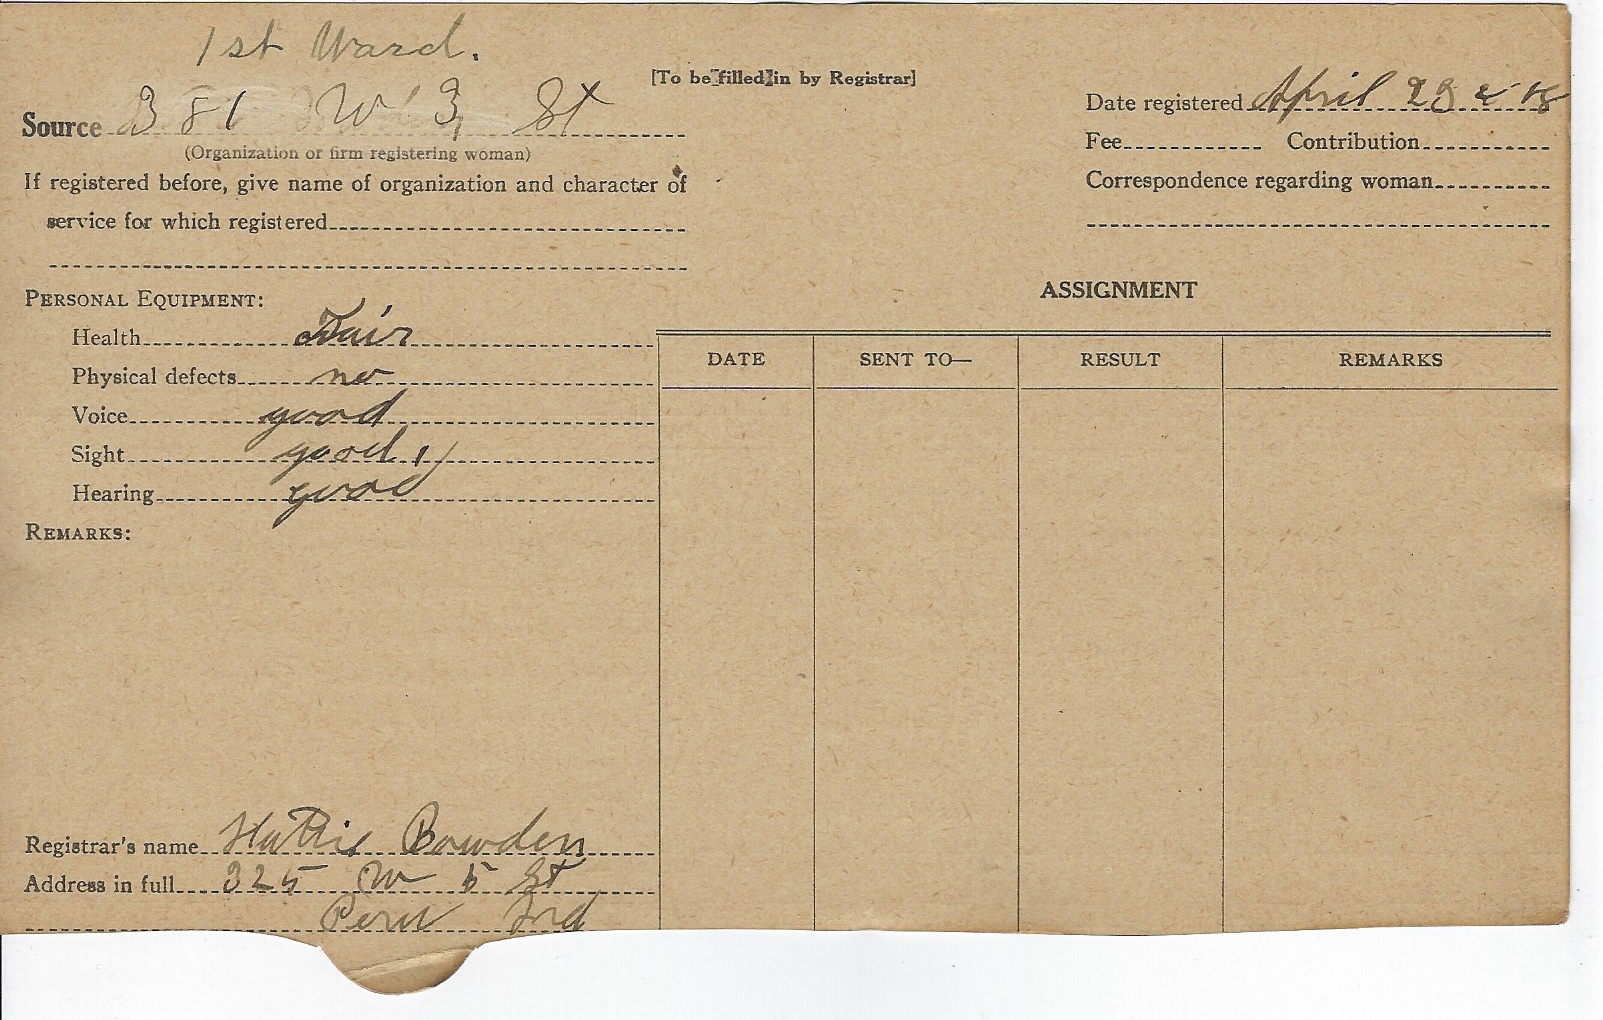 1st Ward.
[To be filled in by Registrar]
Source 381 W 3 St
(Organization or firm registering woman)
If registered before, give name of organization and character of
service for which registered
Date registered April
Fee Contribution
Correspondence regarding woman
PERSONAL EQUIPMENT:
Health Fair
Physical defects no
Voice good
Sight good
Hearing good
REMARKS:
ASSIGNMENT
DATE SENT TO— RESULT REMARKS
Registrar's name Hattie Bowden
Address in full 325 W 5 St
Peru Ind